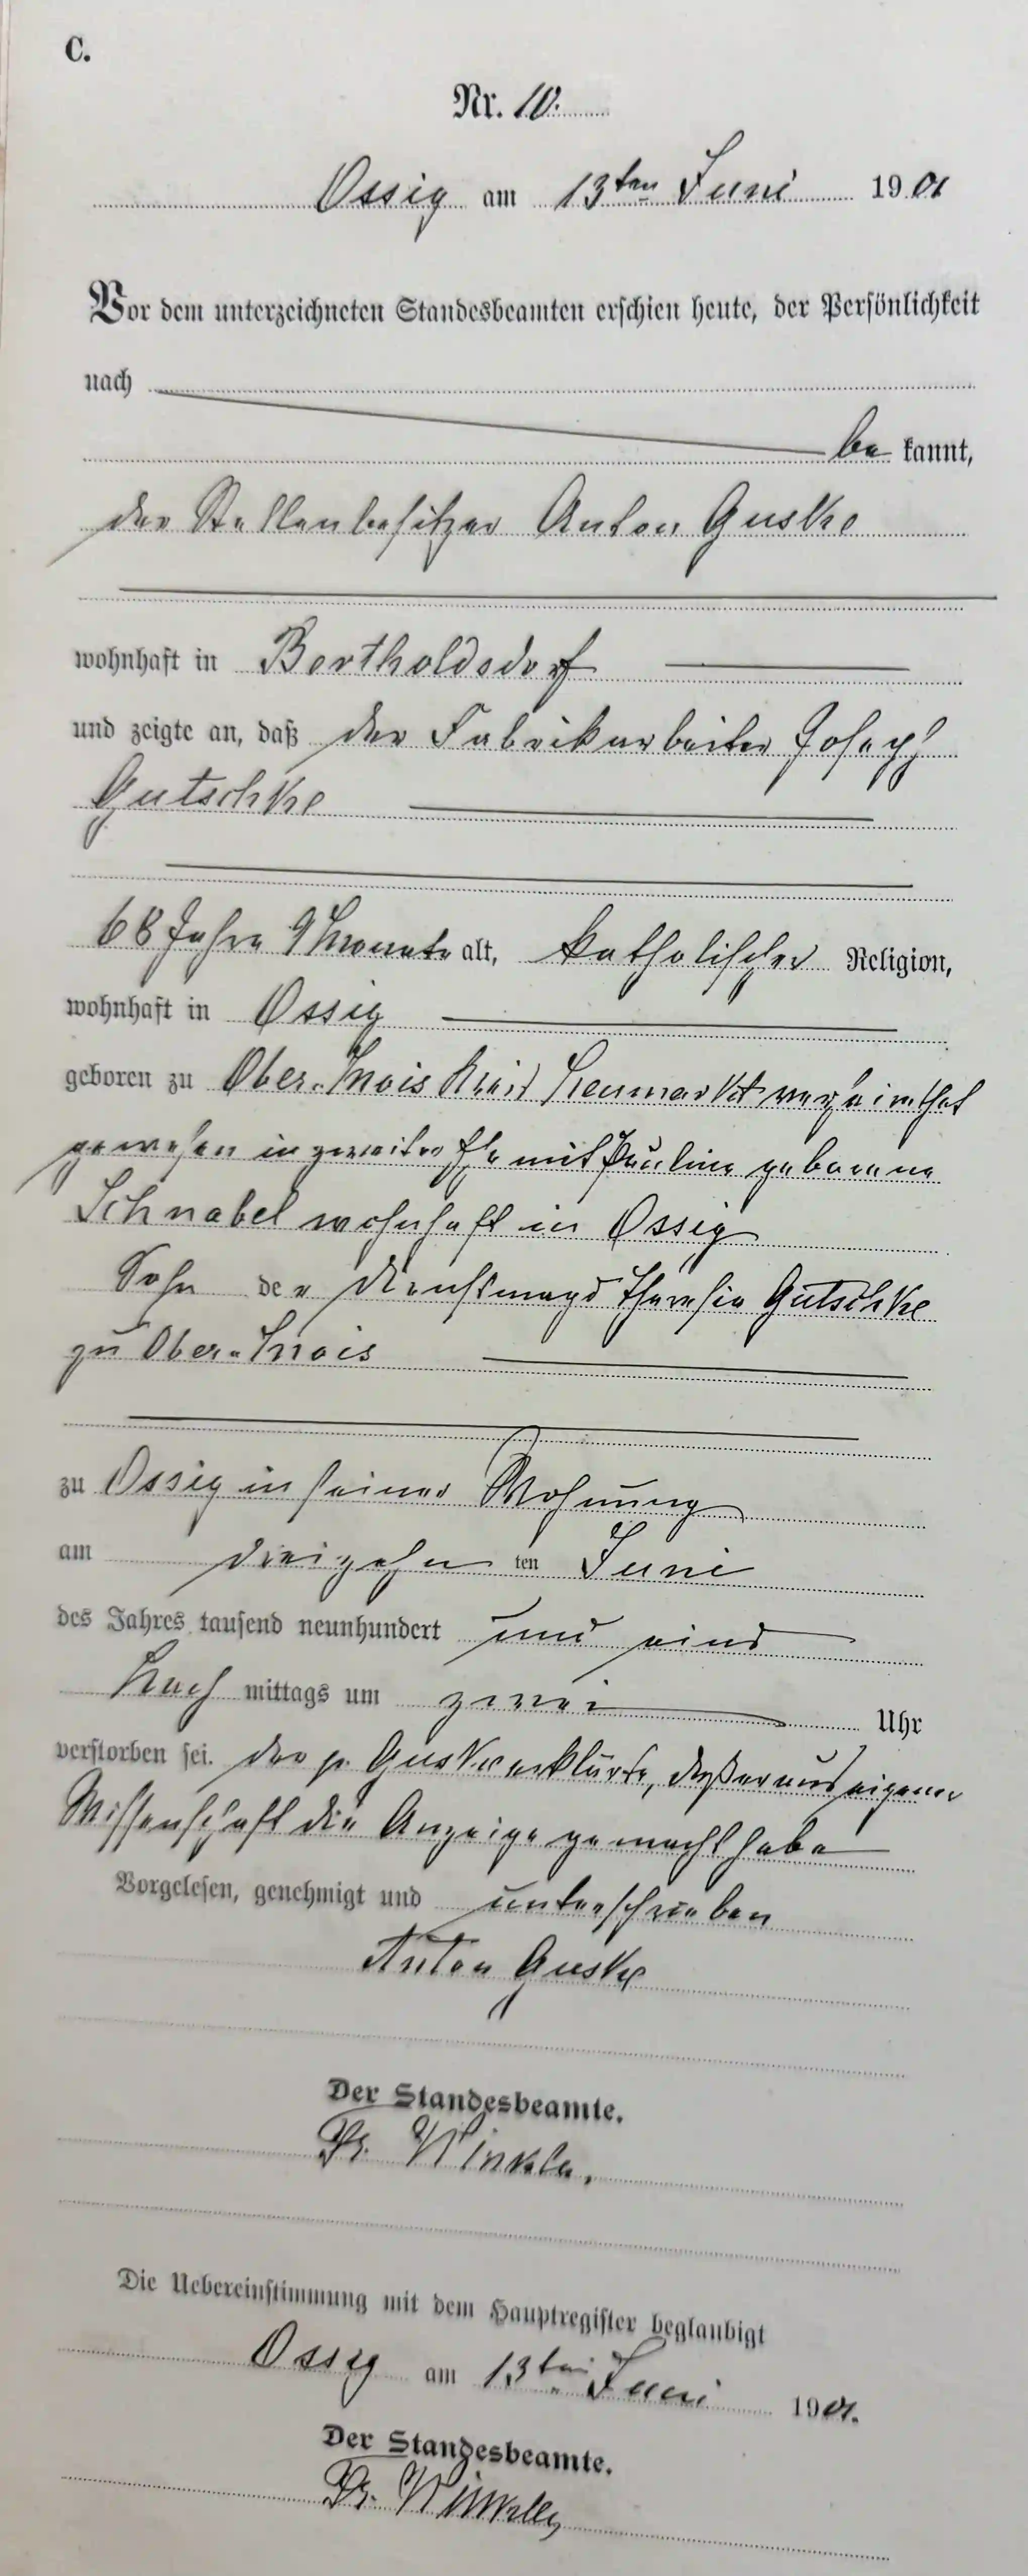 C.
Nr. 10.
Ossig am 13ten Juni 1901
Vor dem unterzeichneten Standesbeamten erschien heute, der Persönlichkeit
nach
be kannt,
der Stellenbesitzer Anton Guske
wohnhaft in Bertholdsdorf
und zeigte an, daß der Fabrikarbeiter Joseph
Gutschke
68 Jahre 9 Monate alt, katholischer Religion,
wohnhaft in Ossig
geboren zu Ober-Mois Kreis Neumarkt verheirathet
gewesen in zweiter Ehe mit Pauline geborene
Schnabel wohnhaft in Ossig
Sohn der Dienstmagd Theresia Gutschke
zu Ober-Mois
zu Ossig in seiner Wohnung
am dreizehn ten Juni
des Jahres tausend neunhundert und eins
Nach mittags um zwei Uhr
verstorben sei. der p. Guske erklärte, daß er aus eigener
Wissenschaft die Anzeige gemacht habe
Vorgelesen, genehmigt und unterschrieben
Anton Guske
Der Standesbeamte.
Fr. Winkler.
Die Uebereinstimmung mit dem Hauptregister beglaubigt
Ossig am 13ten Juni 1901.
Der Standesbeamte.
Fr. Winkler